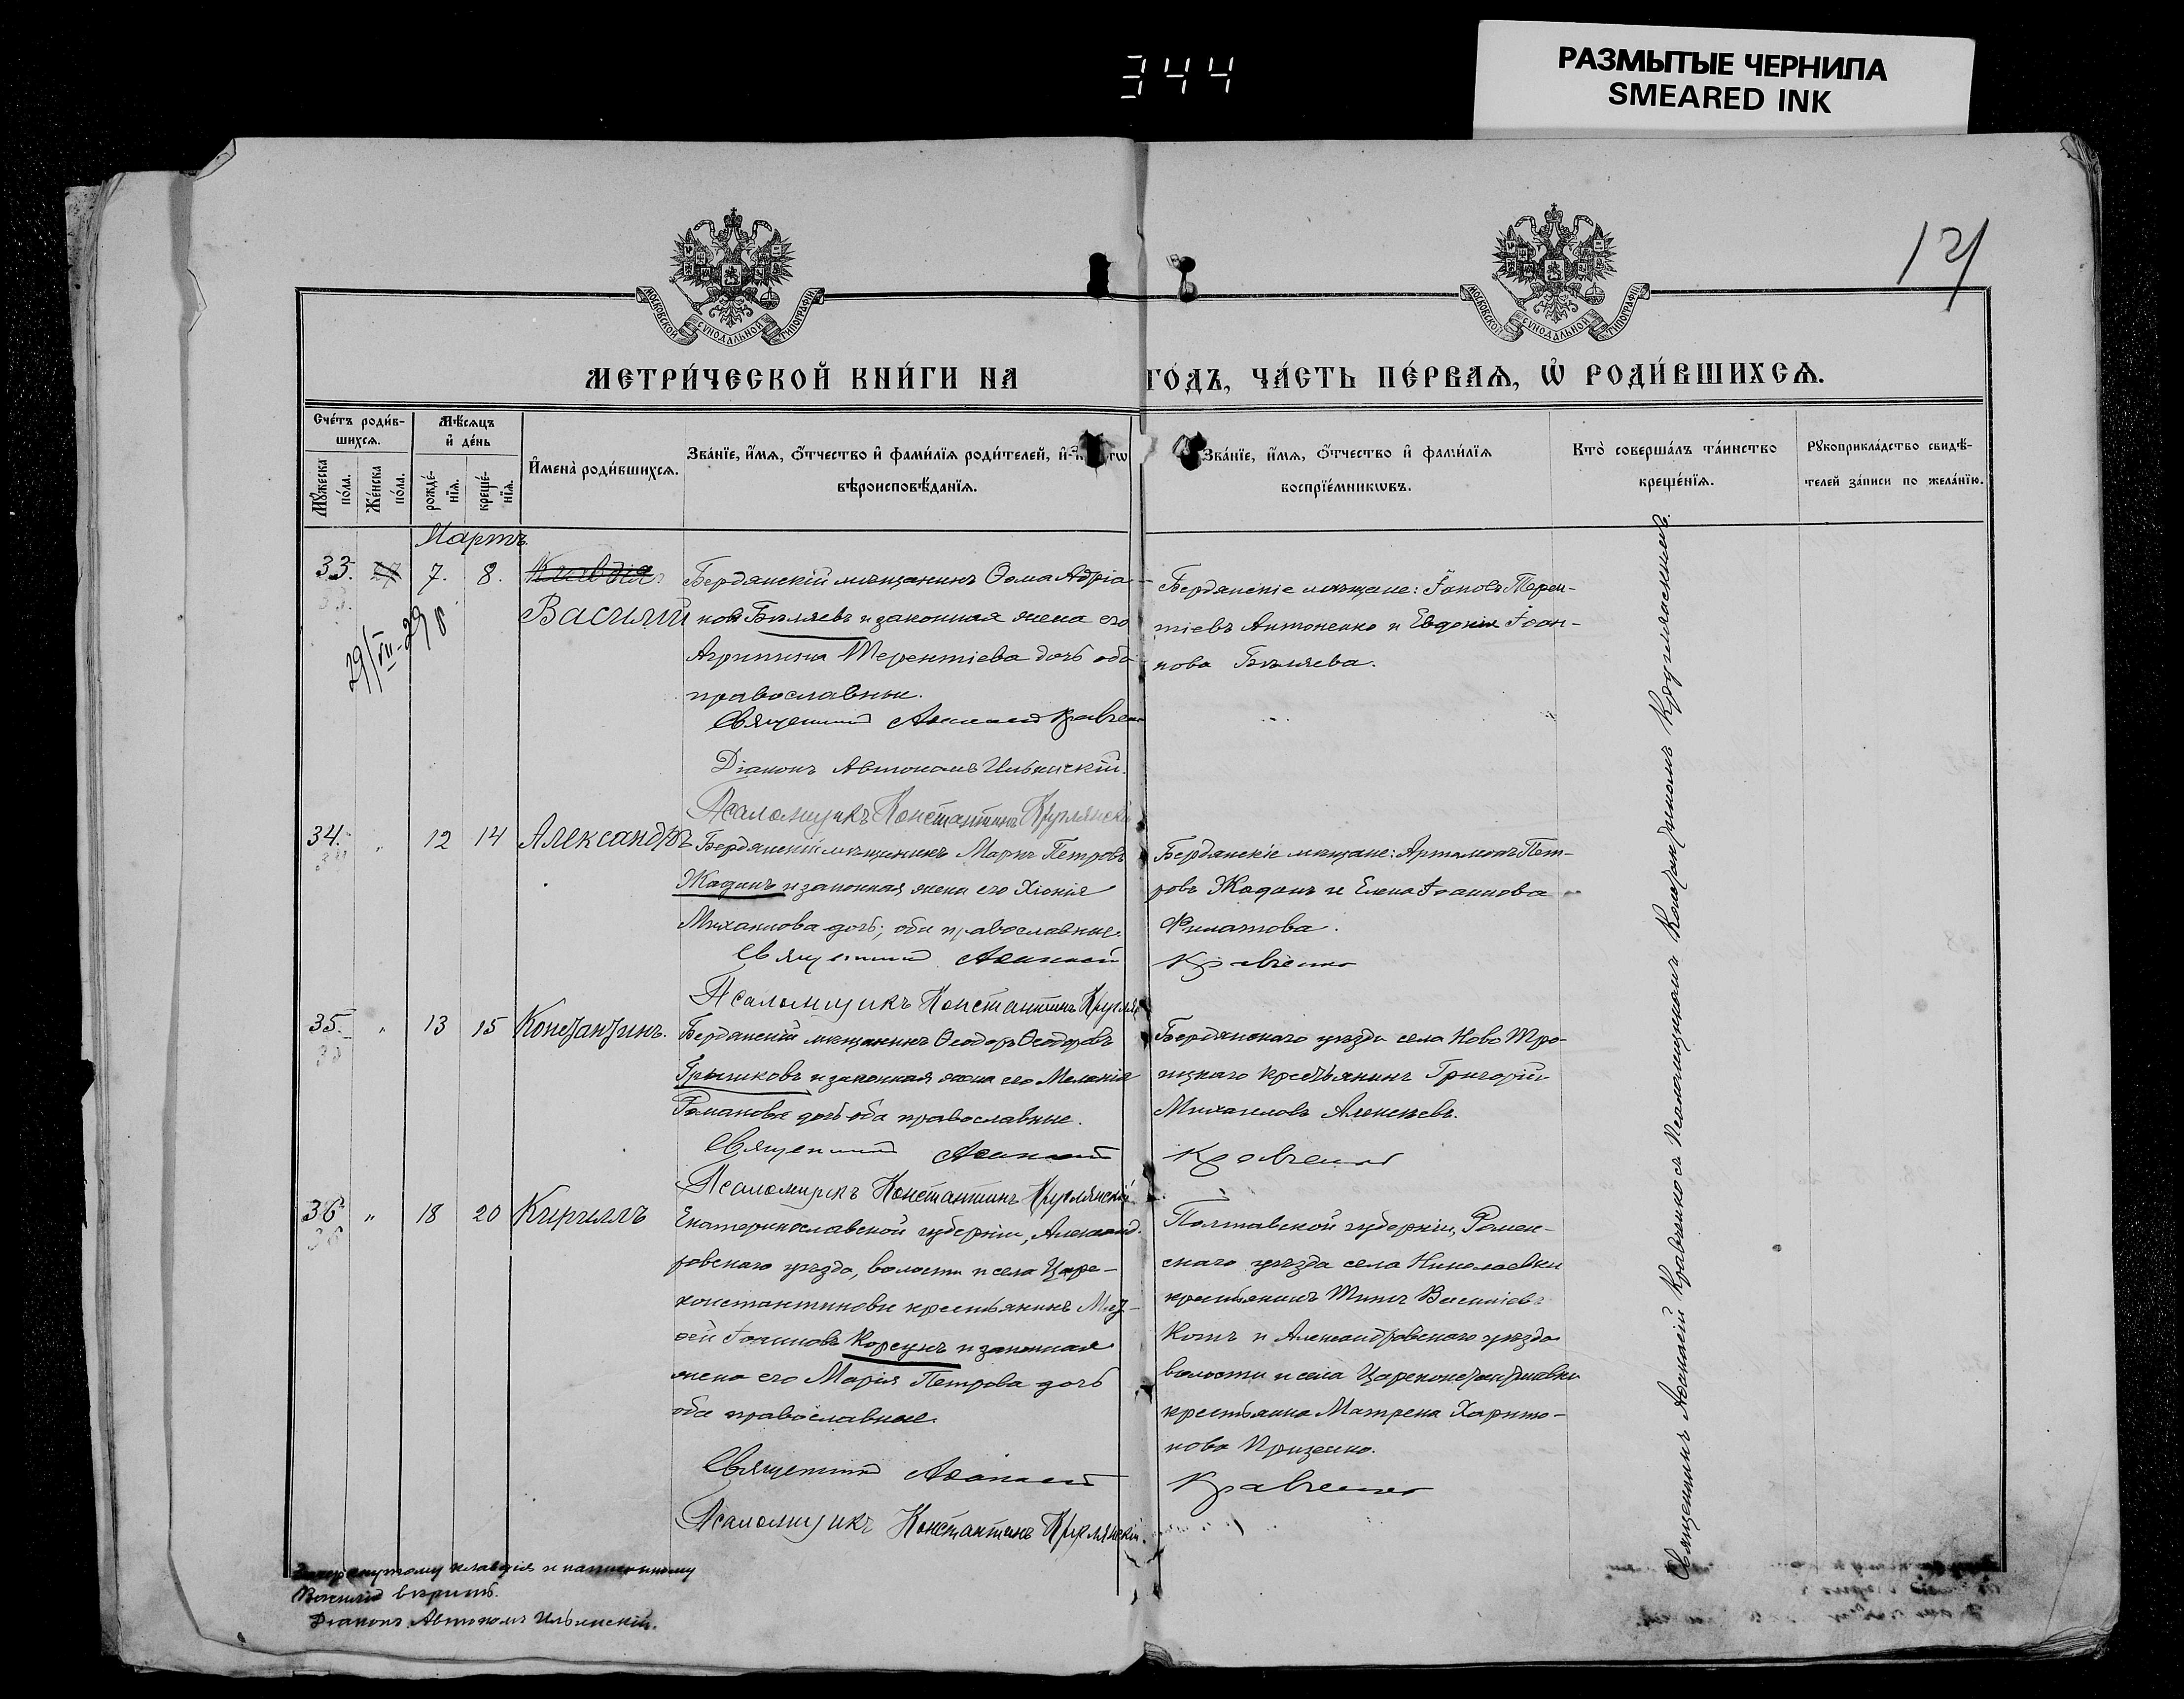 344
РАЗМЫТЫЕ ЧЕРНИЛА
SMEARED INK
121
МОСКОВСКОЙ СѴНОДАЛЬНОЙ ТИПОГРАФІИ
МОСКОВСКОЙ СѴНОДАЛЬНОЙ ТИПОГРАФІИ
МЕТРИ́ЧЕСКОЙ КНИ́ГИ НА ГО́ДЪ, ЧА́СТЬ ПЕ́РВАѦ, Ѡ҆ РОДИ́ВШИХСѦ.
Сче́тъ роди́в-
шихсѧ.
Мꙋ́жеска по́ла.
Же́нска по́ла.
Мѣ́сѧцъ
и҆ де́нь
рожде́-
нїѧ.
креще́-
нїѧ.
И҆мена̀ роди́вшихсѧ.
Зва́нїе, и҆́мѧ, ѻ҆́тчество и҆ фами́лїѧ роди́телей, и҆
вѣроисповѣ́данїѧ.
Зва́нїе, и҆́мѧ, ѻ҆́тчество и҆ фами́лїѧ
воспрїе́мникѡвъ.
Кто̀ соверша́лъ та́инство
креще́нїѧ.
Рꙋкоприкла́дство свидѣ́-
телей за́писи по жела́нїю.
Мартъ.
33. 7. 8. Клавдія.
Василій
29/VII-29 г.
Бердянскій мѣщанинъ Ѳома Адріа-
новъ Бѣляевъ и законная жена его
Агрипина Терентіева дочь оба
православные.
Священникъ Аѳанасій Кравченко
Діаконъ Автономъ Ильинскій.
Псаломщикъ Константинъ Круглянскій
Бердянскіе мѣщане: Іаковъ Терен-
тіевъ Антоненко и Евдокія Іоан-
нова Бѣляева.
34. " 12 14 Александръ
Бердянскій мѣщанинъ Маркъ Петровъ
Жаданъ и законная жена его Хіонія
Михаилова дочь; оба православные.
Священникъ Аѳанасій Кравченко
Псаломщикъ Константинъ Кругля
Бердянскіе мѣщане: Артамонъ Пет-
ровъ Жаданъ и Елена Іоаннова
Филатова.
35. " 13 15 Константинъ.
Бердянскій мѣщанинъ Ѳеодоръ Ѳеодоровъ
и законная жена его Меланія
Романова дочь оба православные.
Священникъ Аѳанасій Кравченко
Псаломщикъ Константинъ Круглянскій
Бердянскаго уѣзда села Ново Тро-
ицкаго крестьянинъ Григорій
Михаиловъ Алексѣевъ.
36 " 18 20 Кириллъ
Екатеринославской губерніи, Александ-
ровскаго уѣзда, волости и села Царе-
константиновки крестьянинъ
Іоанновъ Корсунъ и законная
жена его Марія Петрова дочь
оба православные.
Священникъ Аѳанасій Кравченко
Псаломщикъ Константинъ Круглянскій.
Полтавской губерніи, Ромен-
скаго уѣзда села Николаевки
крестьянинъ Титъ Васильевъ
Котъ и Александровскаго уѣзда
волости и села Цареконстантиновки
крестьянка Матрена Харито-
нова
Священникъ Аѳанасій Кравченко съ Псаломщикомъ Константиномъ Круглянскимъ.
Зачеркнутому Клавдія и написанному
Василій вѣрить.
Діаконъ Автономъ Ильинскій.